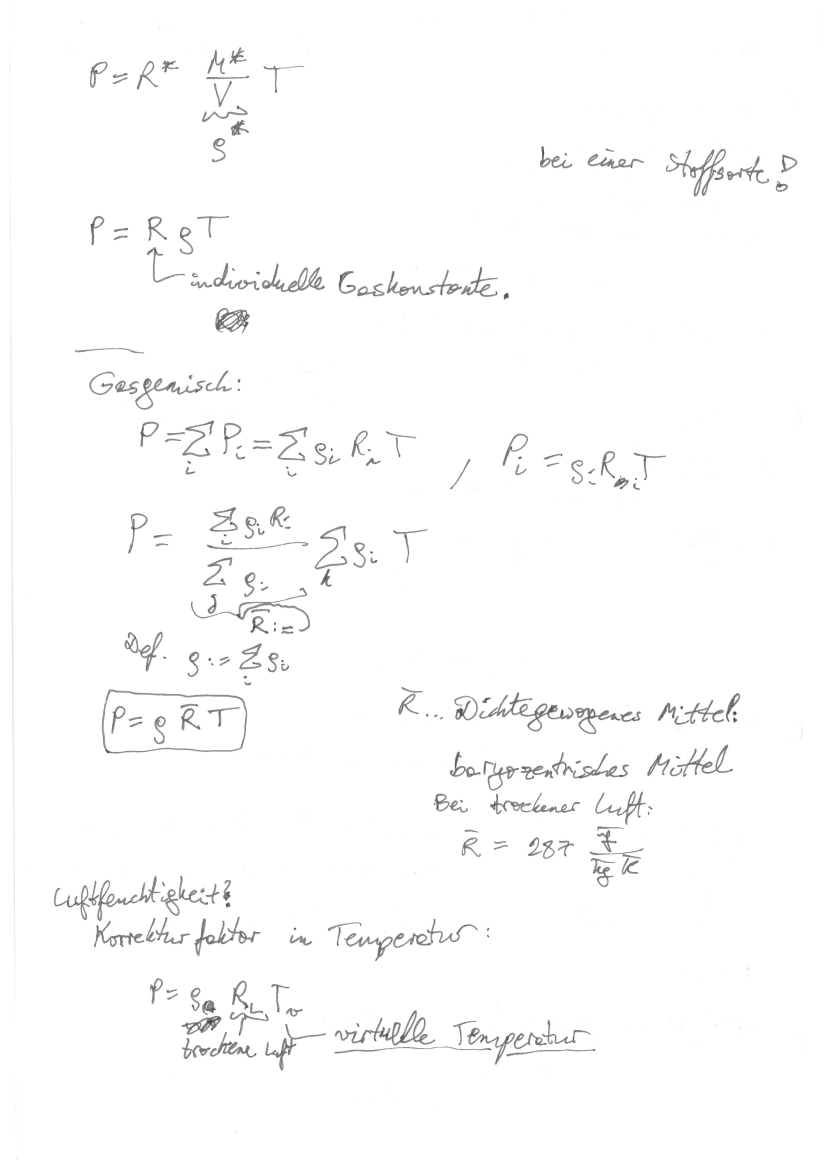 P = R* M*/V T
ρ*
bei einer Stoffsorte!
P = R ρ T
individuelle Gaskonstante.
Gasgemisch:
P = Σ_i P_i = Σ_i ρ_i R_i T , P_i = ρ_i R_i T
P = (Σ_i ρ_i R_i)/(Σ_j ρ_i) Σ_k ρ_i T
R̄ :=
Def. ρ := Σ_i ρ_i
P = ρ R̄ T
R̄ ... Dichtegewogenes Mittel:
baryzentrisches Mittel
Bei trockener Luft:
R̄ = 287 J/(kg K)
Luftfeuchtigkeit?
Korrekturfaktor in Temperatur:
P = ρ R_L T_v
trockene Luft
virtuelle Temperatur